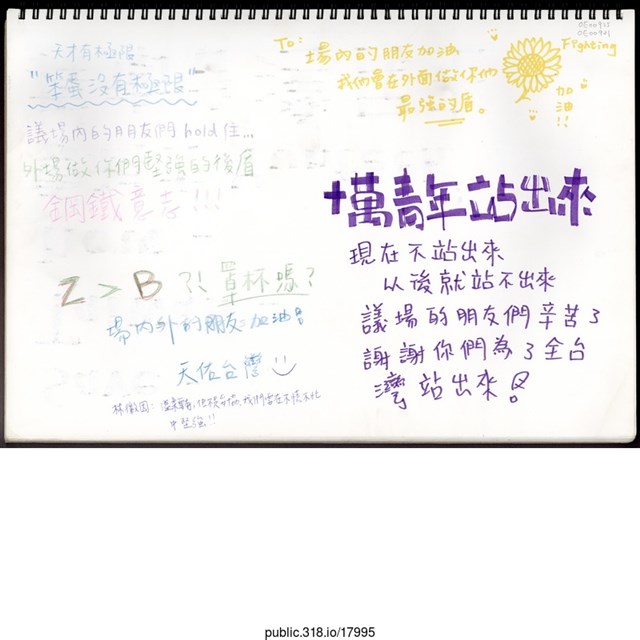 天才有極限
"笨蛋沒有極限"
議場內的朋友們 hold 住...
外場做你們堅強的後盾
鋼鐵意志!!!
2 > B ?! 罩杯嗎?
場內外的朋友:加油!!
天佑台灣
To: 場內的朋友加油
我們會在外面做你們
最強的盾。
Fighting
加油!!
十萬青年站出來
現在不站出來
从後就站不出來
議場的朋友們辛苦了
謝謝你們為了全台
灣站出來
public.318.io/17995